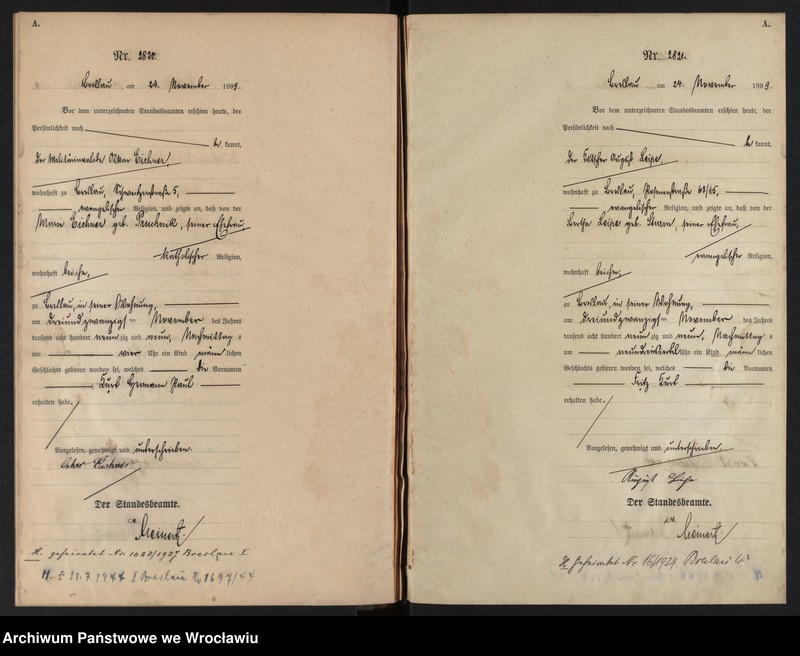 A.
Nr. 2820.
Breslau am 24. November 1899.
Vor dem unterzeichneten Standesbeamten erschien heute, der
Persönlichkeit nach
be kannt,
der Militärinvalide Oskar Eichner,
wohnhaft zu Breslau, 5,
evangelischer Religion, und zeigte an, daß von der
Marie Eichner geb. Pruchnik, seiner Ehefrau,
katholischer Religion,
wohnhaft bei ihm,
zu Breslau, in seiner Wohnung,
am dreiundzwanzigsten November des Jahres
tausend acht hundert neun zig und neun, Nachmittag s
um vier Uhr ein Kind männ lichen
Geschlechts geboren worden sei, welches die Vornamen
Kurt Hermann Paul
erhalten habe.
Vorgelesen, genehmigt und unterschrieben.
Oskar Eichner
Der Standesbeamte.
i. V.
H. geheiratet Nr. 1080/1927 Breslau I
I Breslau Nr. 1697/44
A.
Nr. 2821.
Breslau am 24. November 1899.
Vor dem unterzeichneten Standesbeamten erschien heute, der
Persönlichkeit nach
be kannt,
der Kutscher August Leipe,
wohnhaft zu Breslau, Rosenstraße 63/65,
evangelischer Religion, und zeigte an, daß von der
Bertha Leipe geb. Sturm, seiner Ehefrau,
evangelischer Religion,
wohnhaft bei ihm,
zu Breslau, in seiner Wohnung,
am dreiundzwanzigsten November des Jahres
tausend acht hundert neun zig und neun, Nachmittag s
um neundreiviertel Uhr ein Kind männ lichen
Geschlechts geboren worden sei, welches die Vornamen
Fritz Kurt
erhalten habe.
Vorgelesen, genehmigt und unterschrieben.
August Leipe
Der Standesbeamte.
i. V.
H. geheiratet Nr. 16/1929 Breslau
Archiwum Państwowe we Wrocławiu